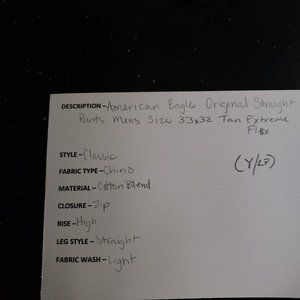 DESCRIPTION - American Eagle Original Straight
Pants Mens Size 33x32 Tan Extreme
Flex
STYLE - Classic
FABRIC TYPE - Chino
(Y/LP)
MATERIAL - Cotton Blend
CLOSURE - Zip
RISE - High
LEG STYLE - Straight
FABRIC WASH - Light